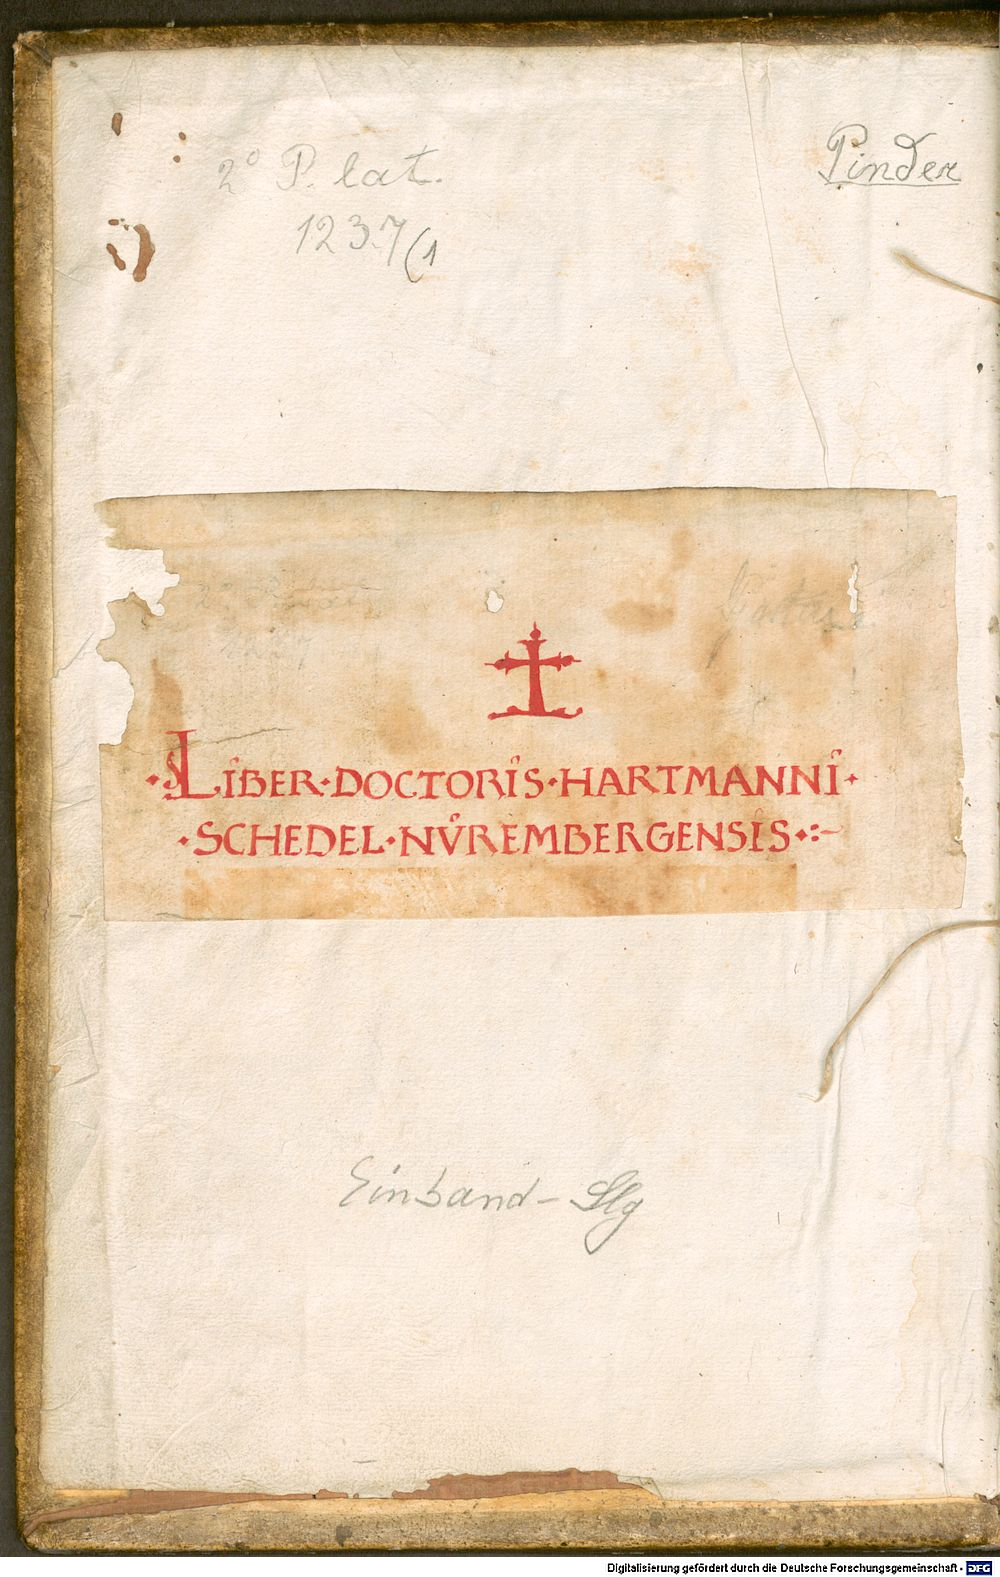 2° P. lat.
1237(1
Pinder
·LIBER·DOCTORIS·HARTMANNI·
·SCHEDEL·NŮREMBERGENSIS·:~
Einband - Slg
Digitalisierung gefördert durch die Deutsche Forschungsgemeinschaft - DFG